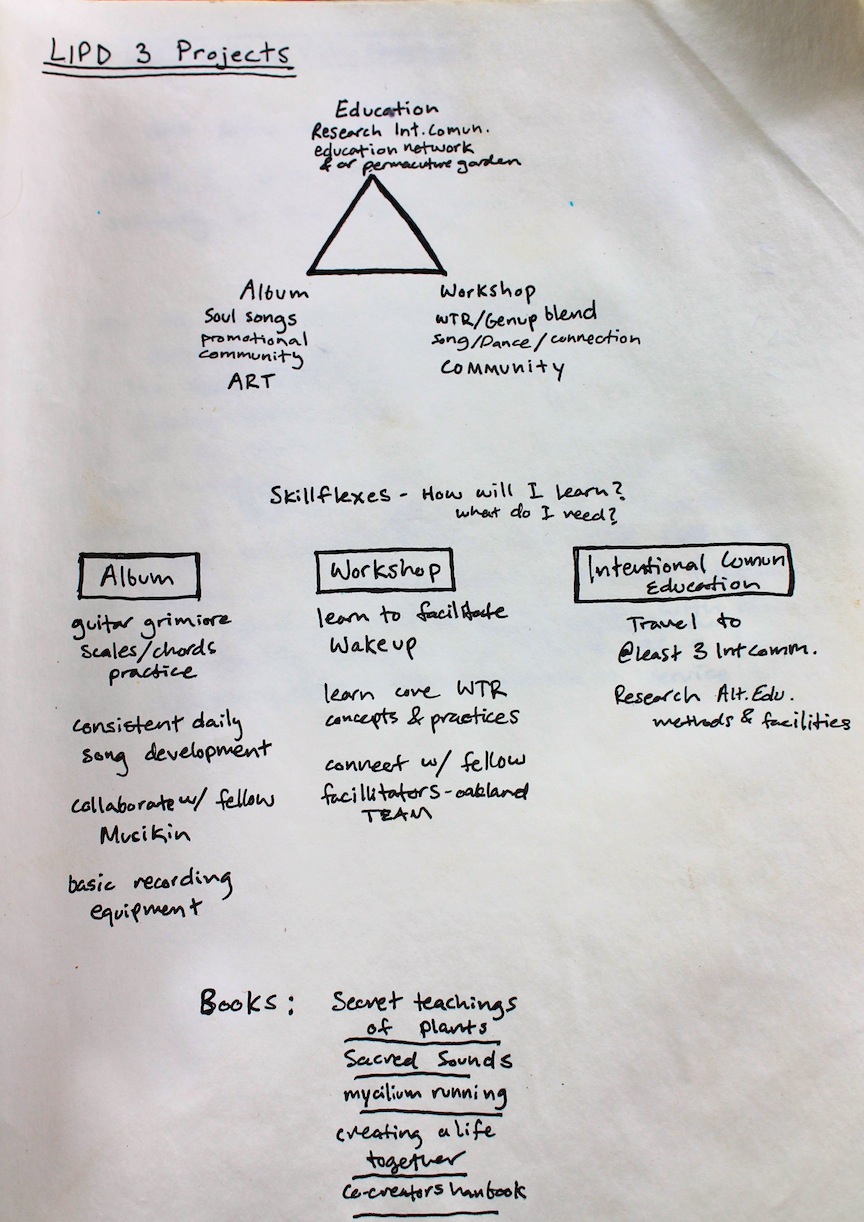 LIPD 3 Projects
Education
Research Int. Comun.
education network
& or permacuture garden
Album
Soul songs
promotional
community
ART
Workshop
WTR/Genup blend
song/Dance/connection
COMMUNITY
Skillflexes - How will I learn?
what do I need?
Album
guitar grimiore
scales/chords
practice
consistent daily
song development
collaborate w/ fellow
Musikin
basic recording
equipment
Workshop
learn to facilitate
Wakeup
learn core WTR
concepts & practices
connect w/ fellow
facillitators - oakland
TEAM
Intentional Comun
Education
Travel to
@least 3 Int comm.
Research Alt. Edu.
methods & facilities
Books:
Secret teachings
of plants
Sacred Sounds
mycilium running
creating a life
together
Co-creators hanbook